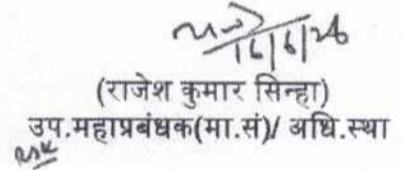 16/6/26
(राजेश कुमार सिन्हा)
उप.महाप्रबंधक(मा.सं)/ अधि.स्था